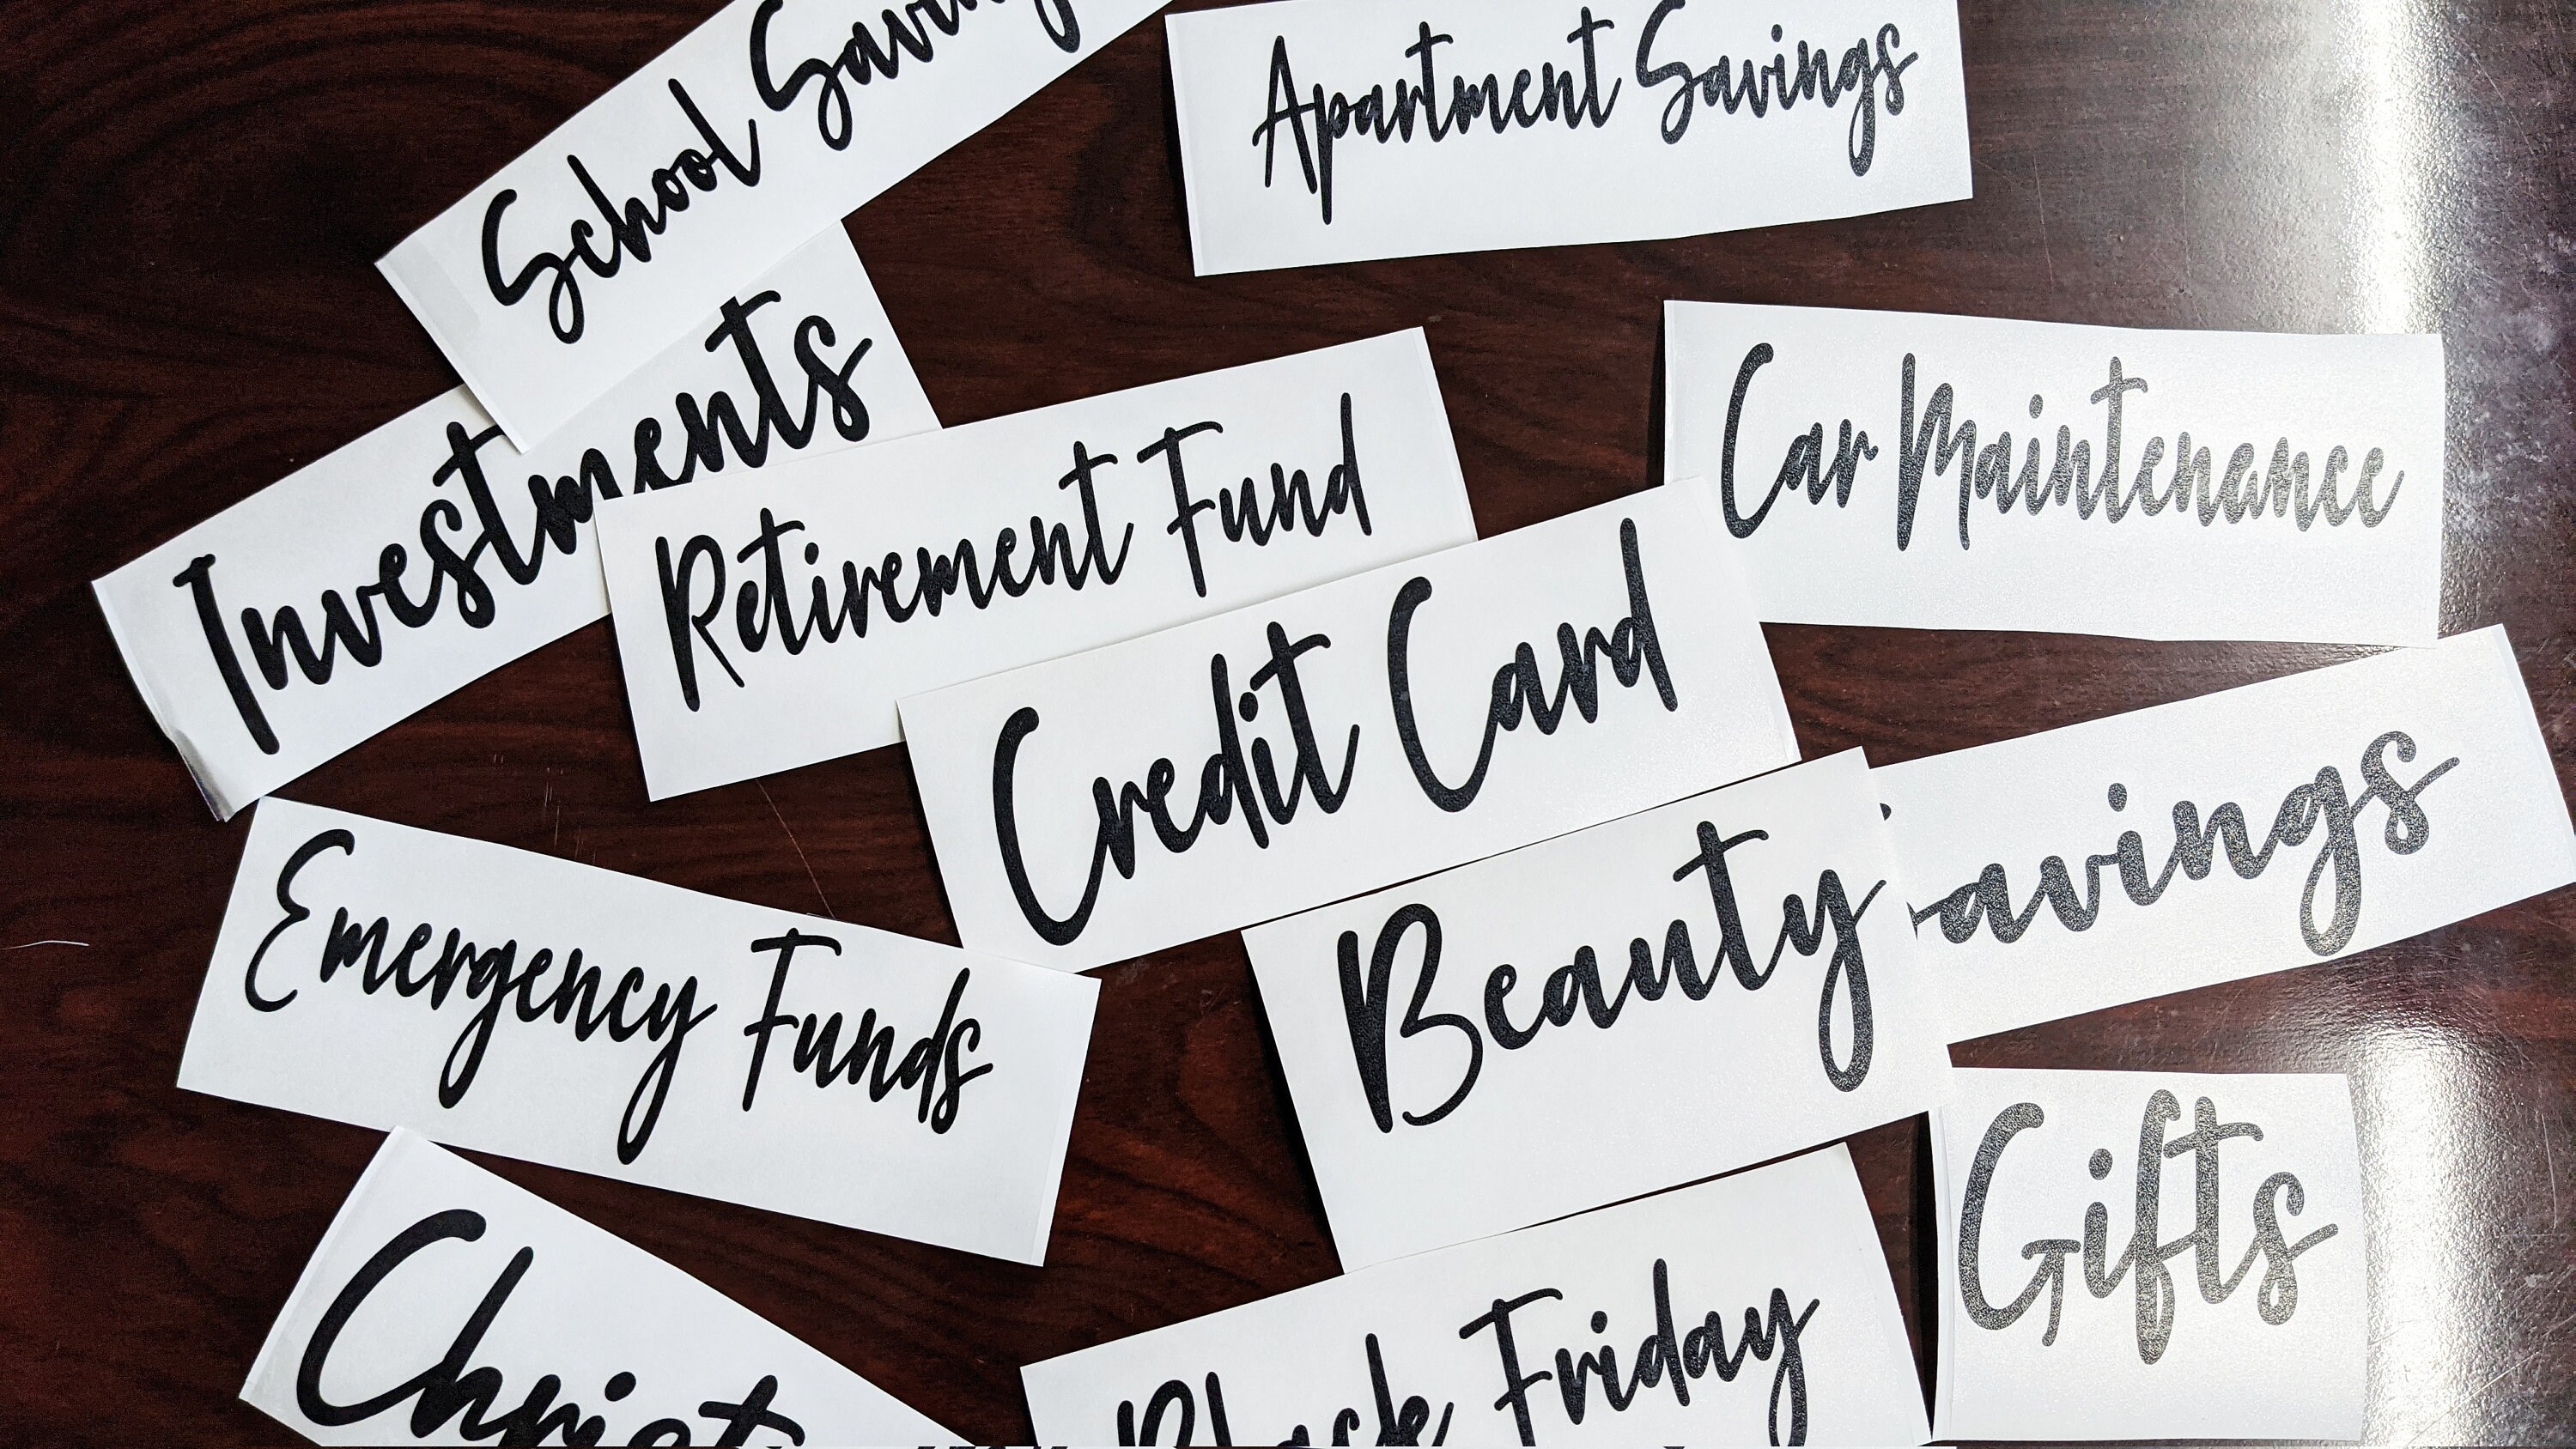 School Savin
Apartment Savings
Investments
Retirement Fund
Car Maintenance
Credit Card
avings
Beauty
Emergency Funds
Gifts
Christ
Black Friday